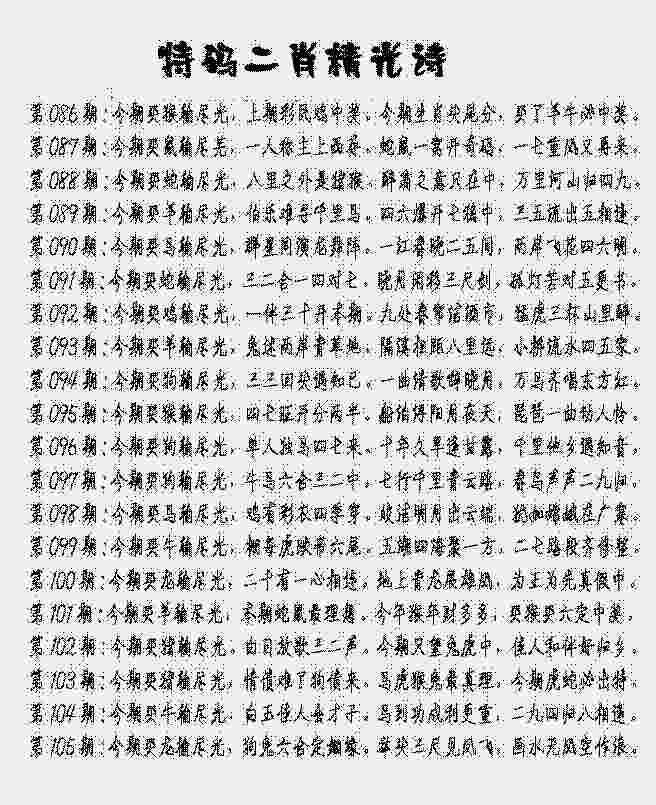 特码二肖精光诗
第086期:今期买猴输尽光,上期彩民鸡中奖。今期生肖尖尾分,买了羊牛必中奖。
第087期:今期买鼠输尽光,一人称主上西。蛇鼠一窝开奇码,一七重风又再来。
第088期:今期买蛇输尽光,八里之外是猪猴。醉翁之意只在中,万里河山归四九。
第089期:今期买羊输尽光,伯乐难寻千里马。四六爆开七雄中,三五流出五相连。
第090期:今期买马输尽光,群星同演龙舞阵。一红春晓二五间,两岸飞花四六明。
第091期:今期买蛇输尽光,三二合一四对七。晓月闲移三尺剑,孤灯苦对五更书。
第092期:今期买鸡输尽光,一伴三十开本期。九处春常信顺市,猛虎三杯山里醉。
第093期:今期买羊输尽光,兔送两岸青草地。隔滨相顾八里远,小桥流水四五家。
第094期:今期买狗输尽光,三三回头遇知己。一曲情歌醉晓月,万马齐唱东方红。
第095期:今期买猴输尽光,四七莊开分两半。船泊浔阳月夜天,琵琶一曲动人怜。
第096期:今期买狗输尽光,单人独马四七来。十年久旱逢甘露,千里他乡遇知音,
第097期:今期买狗输尽光,牛马六合三二中。七行千里青云路,春鸟声声二九归。
第098期:今期买马输尽光,鸡有彩衣四季穿。皎洁明月出云端,犹如嫦娥在广寒。
第099期:今期买牛输尽光,相每虎映带六尾。五湖四海聚一方,二七路段齐修整。
第100期:今期买龙输尽光,二千有一心相连。地上青龙展雄风,为王为光真假中。
第101期:今期买羊输尽光,本期蛇鼠最理想。今年猴年财多多,买猴买六定中奖,
第102期:今期买猪输尽光。由目放歌三二声。今期又望兔虎中,佳人和伴好归乡。
第103期:今期买猪输尽光,情债难了狗债来。马虎猴兔最真理,今期虎蛇必出特。
第104期:今期买牛输尽光,白五佳人会才子。马到功成利更重,二九四归八相逢。
第105期:今期买龙输尽光,狗兔六合定姻缘。举头三尺见风飞,画水无风空作浪。